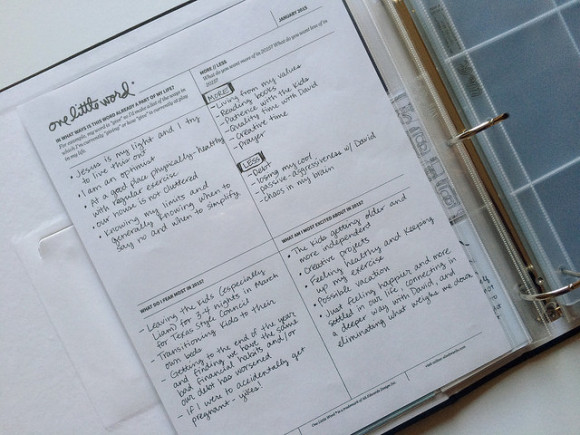 one little word®
JANUARY 2015
IN WHAT WAYS IS THIS WORD ALREADY A PART OF MY LIFE?
• Jesus is my light and I try
to live this out
• I am an optimist
• At a good place physically - healthy
with regular exercise
• our house is not cluttered
• Knowing my limits and
generally knowing when to
say no and when to simplify
MORE // LESS
What do you want more of in 2015? What do you want less of in
2015?
MORE
- Living from my values
- Reading books
- Patience with the kids
- Quality time with David
- Creative time
- Prayer
LESS
- Debt
- losing my cool
- passive-aggressiveness w/ David
- chaos in my brain
WHAT DO I FEAR MOST IN 2015?
- Leaving the kids (especially
Liam) for 3-4 nights in March
for Texas Style Council
- Transitioning kids to their
own beds
- Getting to the end of the year
and finding we have the same
bad financial habits and/or
our debt has worsened
- If I were to accidentally get
pregnant - yikes!
WHAT AM I MOST EXCITED ABOUT IN 2015?
• The kids getting older and
more independent
• Creative projects
• Feeling healthy and keeping
up my exercise
• Possible vacation
• Just feeling happier and more
settled in our life, connecting in
a deeper way with David, and
eliminating what weighs me down